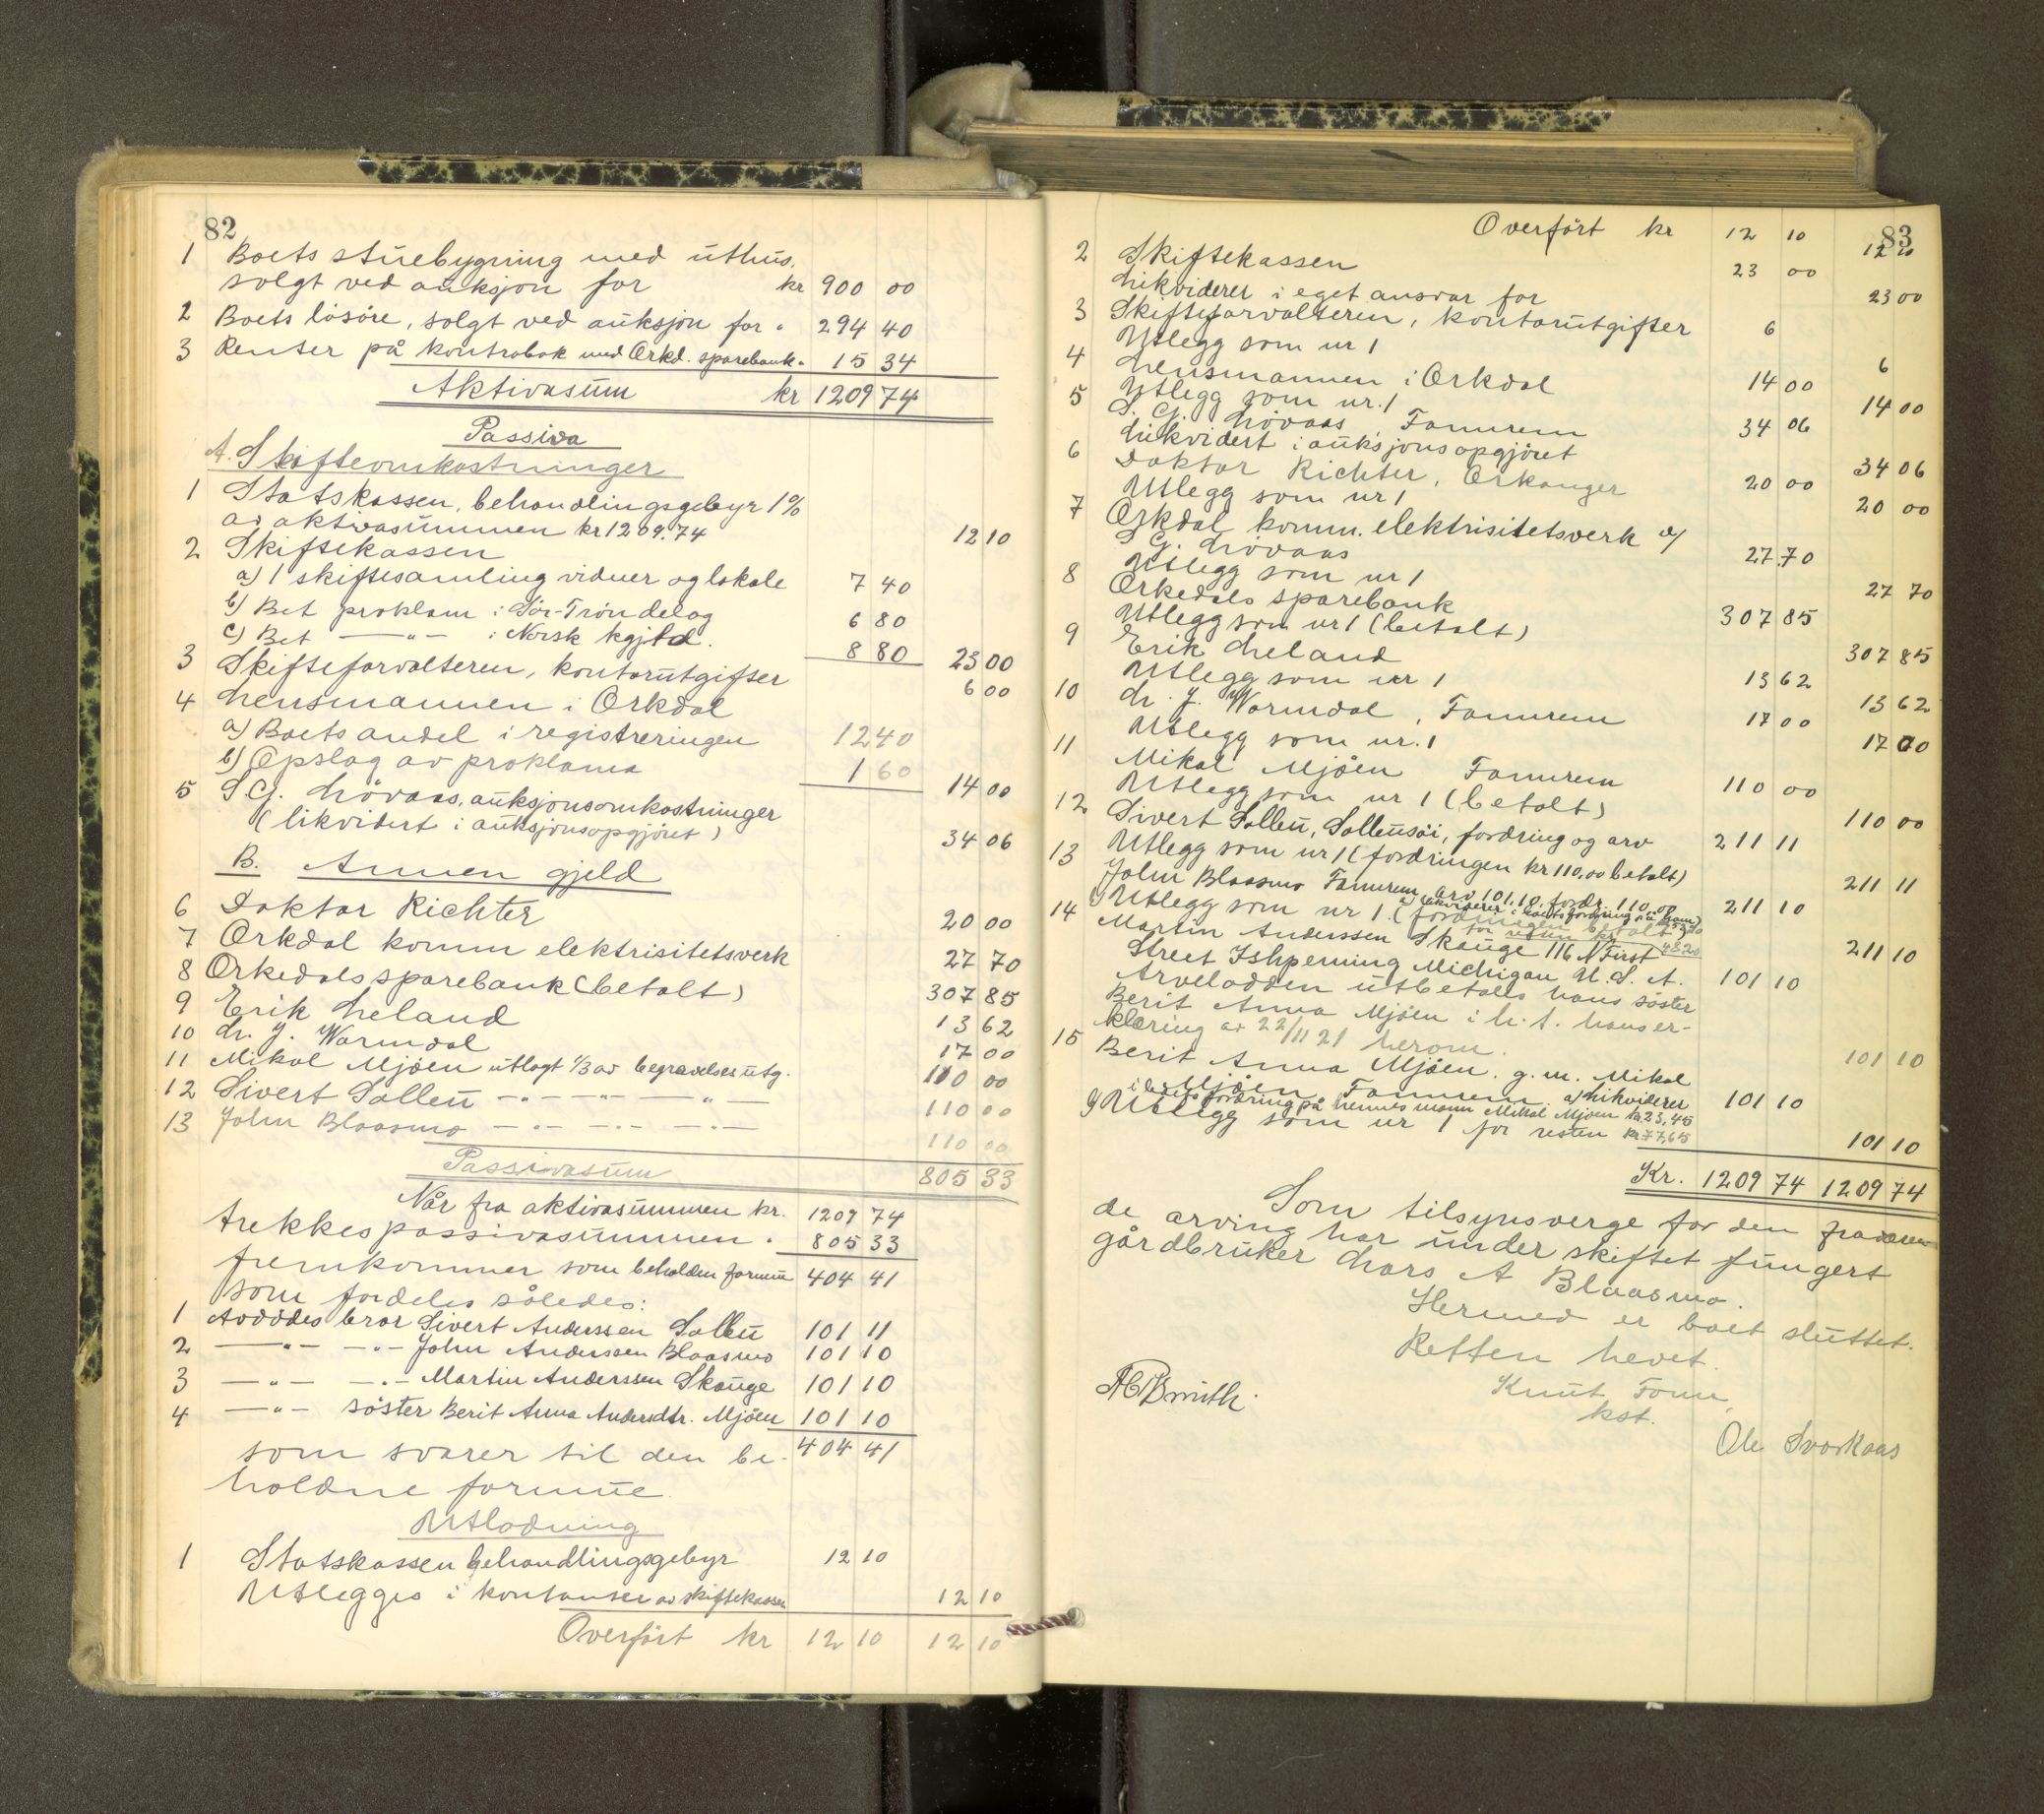 82
1 Boets stuebygning med uthus.
solgt ved auksjon for kr 900 00
2 Boets lösöre, solgt ved auksjon for " 294 40
3 Renter på kontrabok med Orkd. sparebank " 15 34
Aktivasum kr 1209 74
Passiva
A. Skifteomkostninger
1 Statskassen, behandlingsgebyr 1%
av aktivasummen kr 1209.74 12 10
2 Skiftekassen
a) 1 skiftesamling vidner og lokale 7 40
b) Bet proklam i Sör-Tröndelag 6 80
c) Bet — " — i Norsk kgjtd. 8 80 23 00
3 Skifteforvalteren, kontorutgifter 6 00
4 Lensmannen i Orkdal
a) Boets andel i registreringen 12 40
b) Opslag av proklama 1 60 14 00
5 S G. Lövaas, auksjonsomkostninger
(likvidert i auksjonsopgjöret) 34 06
B. Annen gjeld
6 Doktor Richter 20 00
7 Orkdal komm elektrisitetsverk 27 70
8 Orkedals sparebank (betalt) 307 85
9 Erik Leland 13 62
10 L. J. Warmdal 17 00
11 Mikal Mjöen utlagt 1/3 av begravelsesutg. 110 00
12 Sivert Solleu — " — — " — — " — 110 00
13 John Blaasmo — " — — " — — " — 110 00
Passivasum 805 33
Når fra aktivasummen kr. 1209 74
trekkes passivasummen " 805 33
fremkommer som beholden formue 404 41
som fordeles således:
1 Avdödes bror Sivert Anderssen Solleu 101 11
2 — " — — " — John Anderssen Blaasmo 101 10
3 — " — — " — Martin Anderssen Skauge 101 10
4 — " — söster Berit Anna Andersdtr. Mjöen 101 10
som svarer til den be- 404 41
holdne formue.
Utlodning
1 Statskassen behandlingsgebyr 12 10
Utlegges i kontanter av skiftekassen 12 10
Overfört kr 12 10 12 10
83
Overfört kr 12 10 12 10
2 Skiftekassen 23 00
Likviderer i eget ansvar for 23 00
3 Skifteforvalteren, kontorutgifter 6
Utlegg som nr 1 6
4 Lensmannen i Orkdal 14 00
Utlegg som nr. 1 14 00
5 S. G. Lövaas, Fannrem 34 06
Likvidert i auksjonsopgjöret 34 06
6 Doktor Richter, Orkanger 20 00
Utlegg som nr 1 20 00
7 Orkdal komm. elektrisitetsverk v/
S G. Lövaas 27 70
Utlegg som nr 1 27 70
8 Orkedals sparebank 307 85
Utlegg som nr 1 (betalt) 307 85
9 Erik Leland 13 62
Utlegg som nr 1 13 62
10 L. J. Warmdal, Fannrem 17 00
Utlegg som nr. 1 17 00
11 Mikal Mjöen Fannrem 110 00
Utlegg som nr 1 (betalt) 110 00
12 Sivert Solleu, Solleusöi, fordring og arv 211 11
Utlegg som nr 1 (fordringen kr 110,00 betalt) 211 11
13 John Blaasmo Fannrem, arv 101.10, fordr. 110,00 211 10
a) likviderer i boets fordring på ham
Utlegg som nr 1 (fordringen betalt) 211 10
for resten kr. 48 20
14 Martin Anderssen Skauge 116 N First
Street Ishpeming Michigan U. S. A. 101 10
Arvelodden utbetales hans söster
Berit Anna Mjöen i h. t. hans er-
klæring av 22/11 21 herom. 101 10
15 Berit Anna Mjöen. g. m. Mikal
Mjöen Fannrem. a) Likviderer 101 10
i boets fordring på hennes mann Mikal Mjöen kr. 23,45
b) Utlegg som nr 1 for resten kr 77,65 101 10
Kr. 1209 74 1209 74
Som tilsynsverge for den fraværen-
de arving har under skiftet fungert
gårdbruker Lars A Blaasmo.
Hermed er boet sluttet.
Retten hevet.
Knut Fonn
kst.
Ole Svorkaas